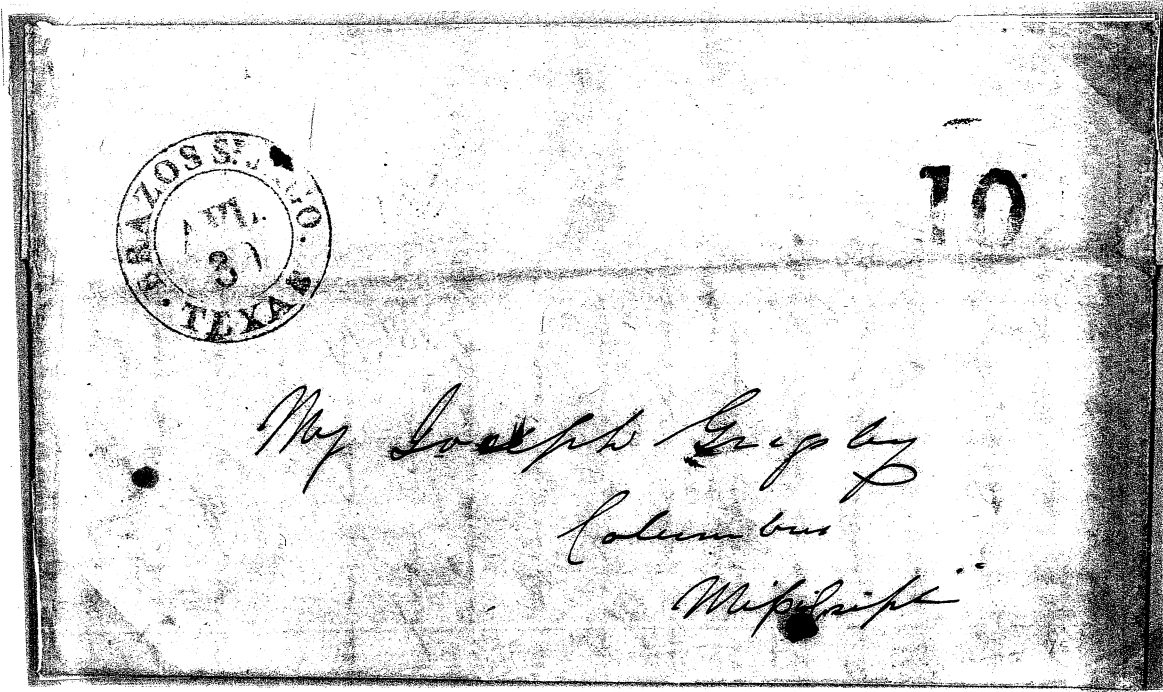 BRAZOS St. IAGO.
TEXAS
30
10
Maj Joseph Grigsby
Columbus
Mississippi